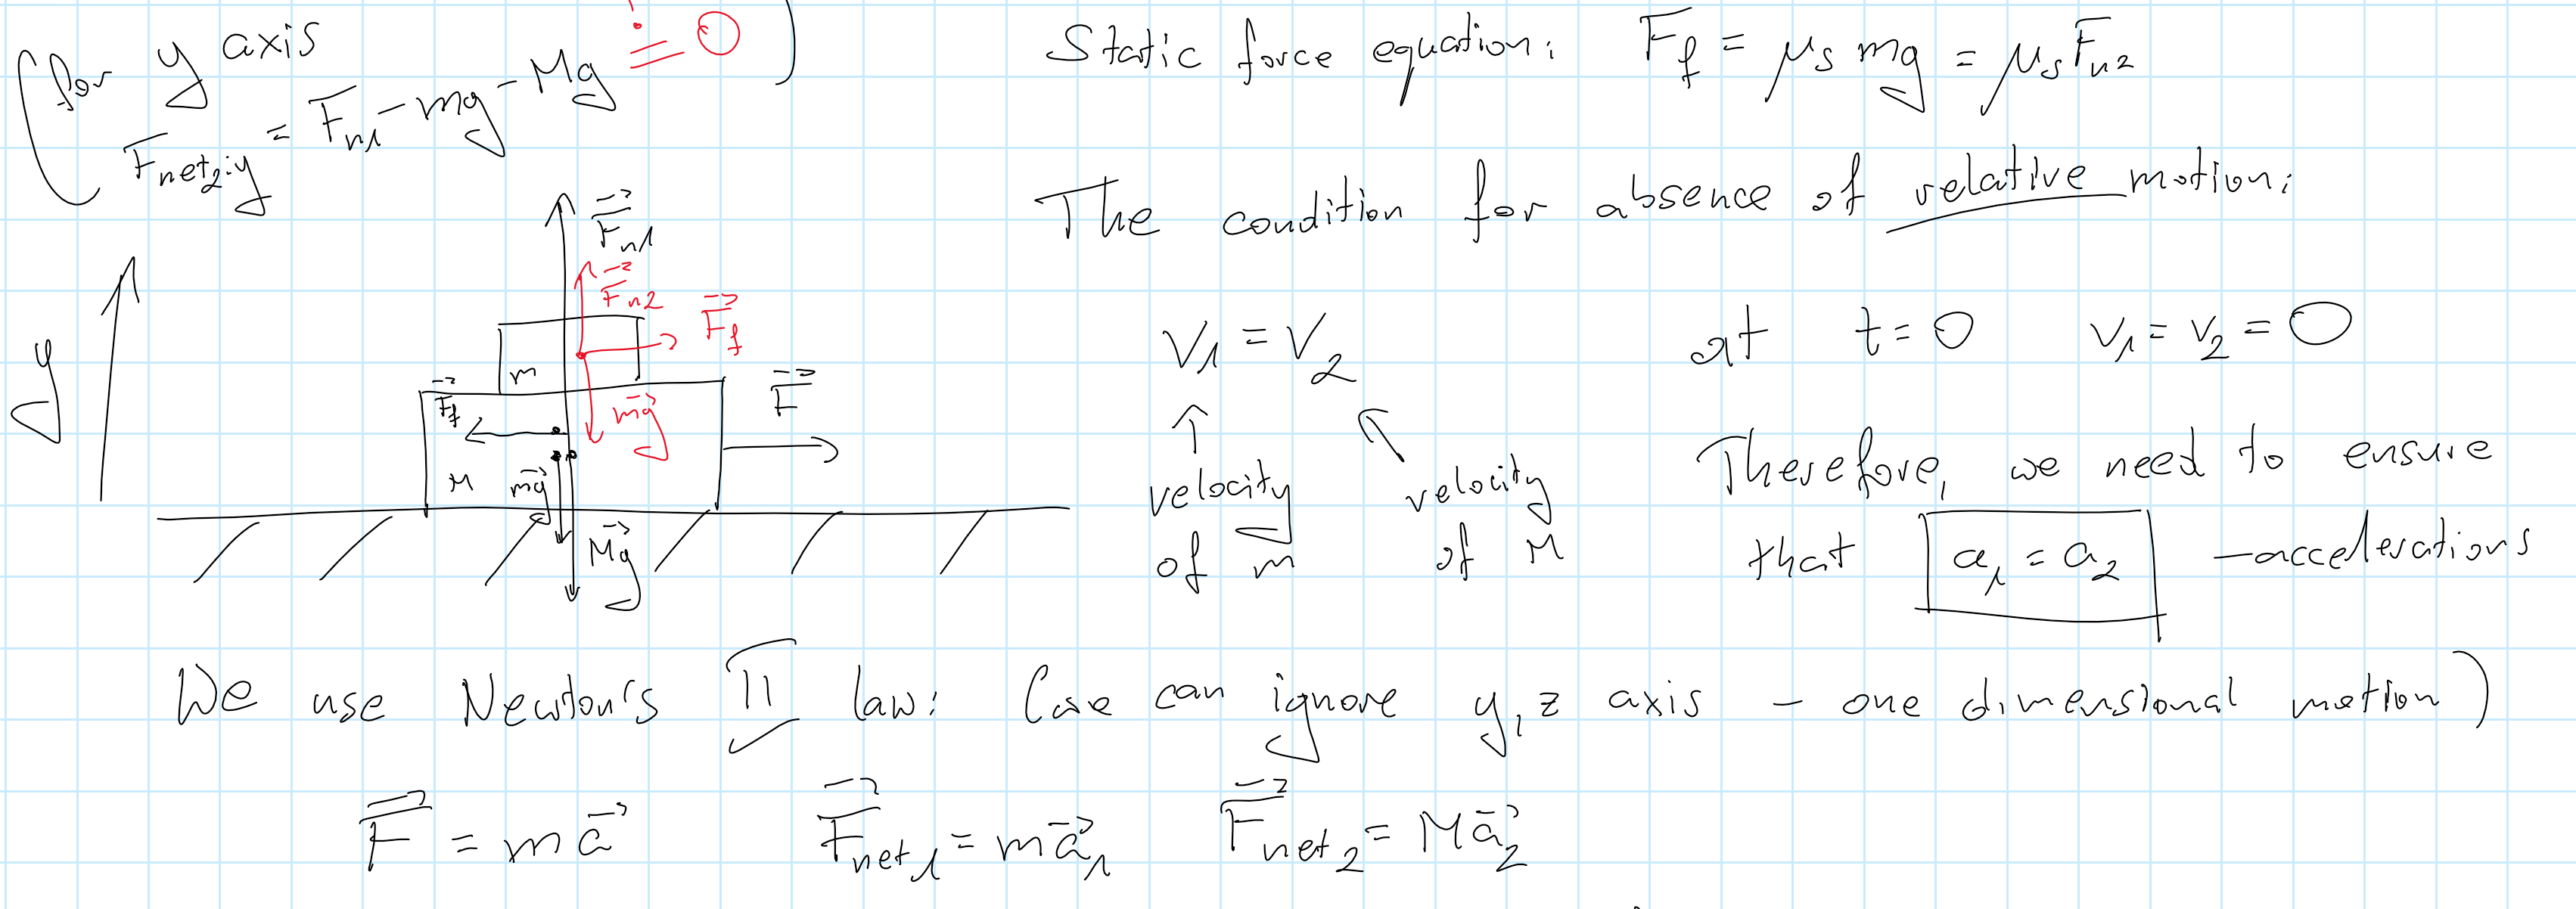 (for y axis
F_net2;y = F_n1 - mg - Mg = 0 )
Static force equation: F_f = μ_s mg = μ_s F_n2
The condition for absence of relative motion:
v_1 = v_2
velocity of m
velocity of M
at t = 0 v_1 = v_2 = 0
Therefore, we need to ensure
that a_1 = a_2 - accelerations
y
F_n1
F_n2
F_f
m
F_f
mg
F
M
mg
Mg
We use Newton's II law: (we can ignore y, z axis - one dimensional motion)
F = ma F_net1 = ma_1 F_net2 = Ma_2